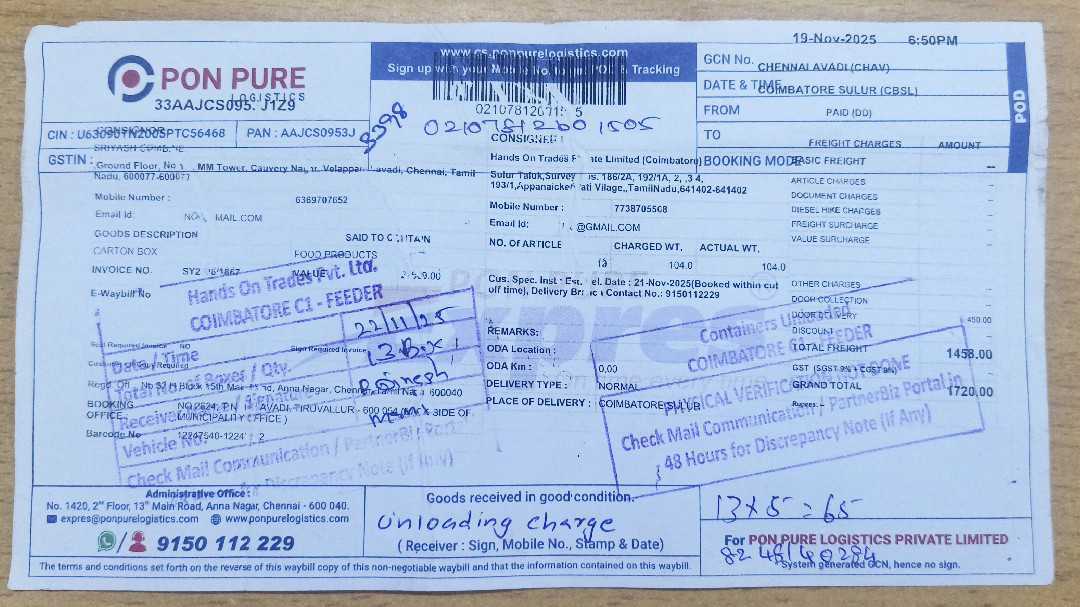 19-Nov-2025 6:50PM
PON PURE
LOGISTICS
33AAJCS095. J1Z9
www.cs.ponpurelogistics.com
Sign up with your Mobile No. to POD & Tracking
02107812601505
3398
GCN No. CHENNAI AVADI (CHAV)
DATE & TIME COIMBATORE SULUR (CBSL)
FROM PAID (DD)
TO
BOOKING MODE
POD
CIN : U63090TN2005PTC56468
PAN : AAJCS0953J
CONSIGNOR
GSTIN :
Ground Floor, No MM Tower, Cauvery Velappan avadi, Chennai, Tamil
Nadu, 600077-600077
Mobile Number : 6369707652
Email Id: MAIL.COM
GOODS DESCRIPTION SAID TO CONTAIN
CARTON BOX FOOD PRODUCTS
INVOICE NO. VALUE
E-Waybill No
CONSIGNEE
Hands On Trades Limited (Coimbatore)
Sulur Taluk,Survey 186/2A, 192/1A, 2, ,3 4,
193/1,Appanaicken Vilage,,TamilNadu,641402-641402
Mobile Number : 7738705508
Email Id: @GMAIL.COM
NO. OF ARTICLE CHARGED WT. ACTUAL WT.
13 104.0 104.0
Cus. Spec. Inst : Del. Date : 21-Nov-2025(Booked within cut
off time), Delivery Branch Contact No.: 9150112229
REMARKS:
ODA Location :
ODA Km : 0.00
DELIVERY TYPE : NORMAL
PLACE OF DELIVERY : COIMBATORE SULUR
FREIGHT CHARGES AMOUNT
BASIC FREIGHT
ARTICLE CHARGES
DOCUMENT CHARGES
DIESEL HIKE CHARGES
FREIGHT SURCHARGE
VALUE SURCHARGE
OTHER CHARGES
DOOR COLLECTION
DOOR DELIVERY 450.00
DISCOUNT
TOTAL FREIGHT 1458.00
GST (SGST 9% + CGST 9%)
GRAND TOTAL 1720.00
Rupees
Hands On Trades Pvt. Ltd.
COIMBATORE C1 - FEEDER
Date / Time 22/11/25
Total No. of Boxes / Qty. 13 Box
Vehicle No.
Check Mail Communication / PartnerBiz Portal
Discrepancy Note (If Any)
Containers Unloaded
COIMBATORE FEEDER
PHYSICAL VERIFICATION
Check Mail Communication / PartnerBiz Portal in
48 Hours for Discrepancy Note (If Any)
Anna Nagar, Chennai 600040
BOOKING OFFICE AVADI, TIRUVALLUR SIDE OF
MUNICIPALITY OFFICE )
Barcode No
Administrative Office :
No. 1420, 2nd Floor, 13th Main Road, Anna Nagar, Chennai - 600 040.
expres@ponpurelogistics.com www.ponpurelogistics.com
9150 112 229
Goods received in good condition.
Unloading charge
( Receiver : Sign, Mobile No., Stamp & Date)
13 x 5 = 65
For PON PURE LOGISTICS PRIVATE LIMITED
8248140284
System generated GCN, hence no sign.
The terms and conditions set forth on the reverse of this waybill copy of this non-negotiable waybill and that the information contained on this waybill.